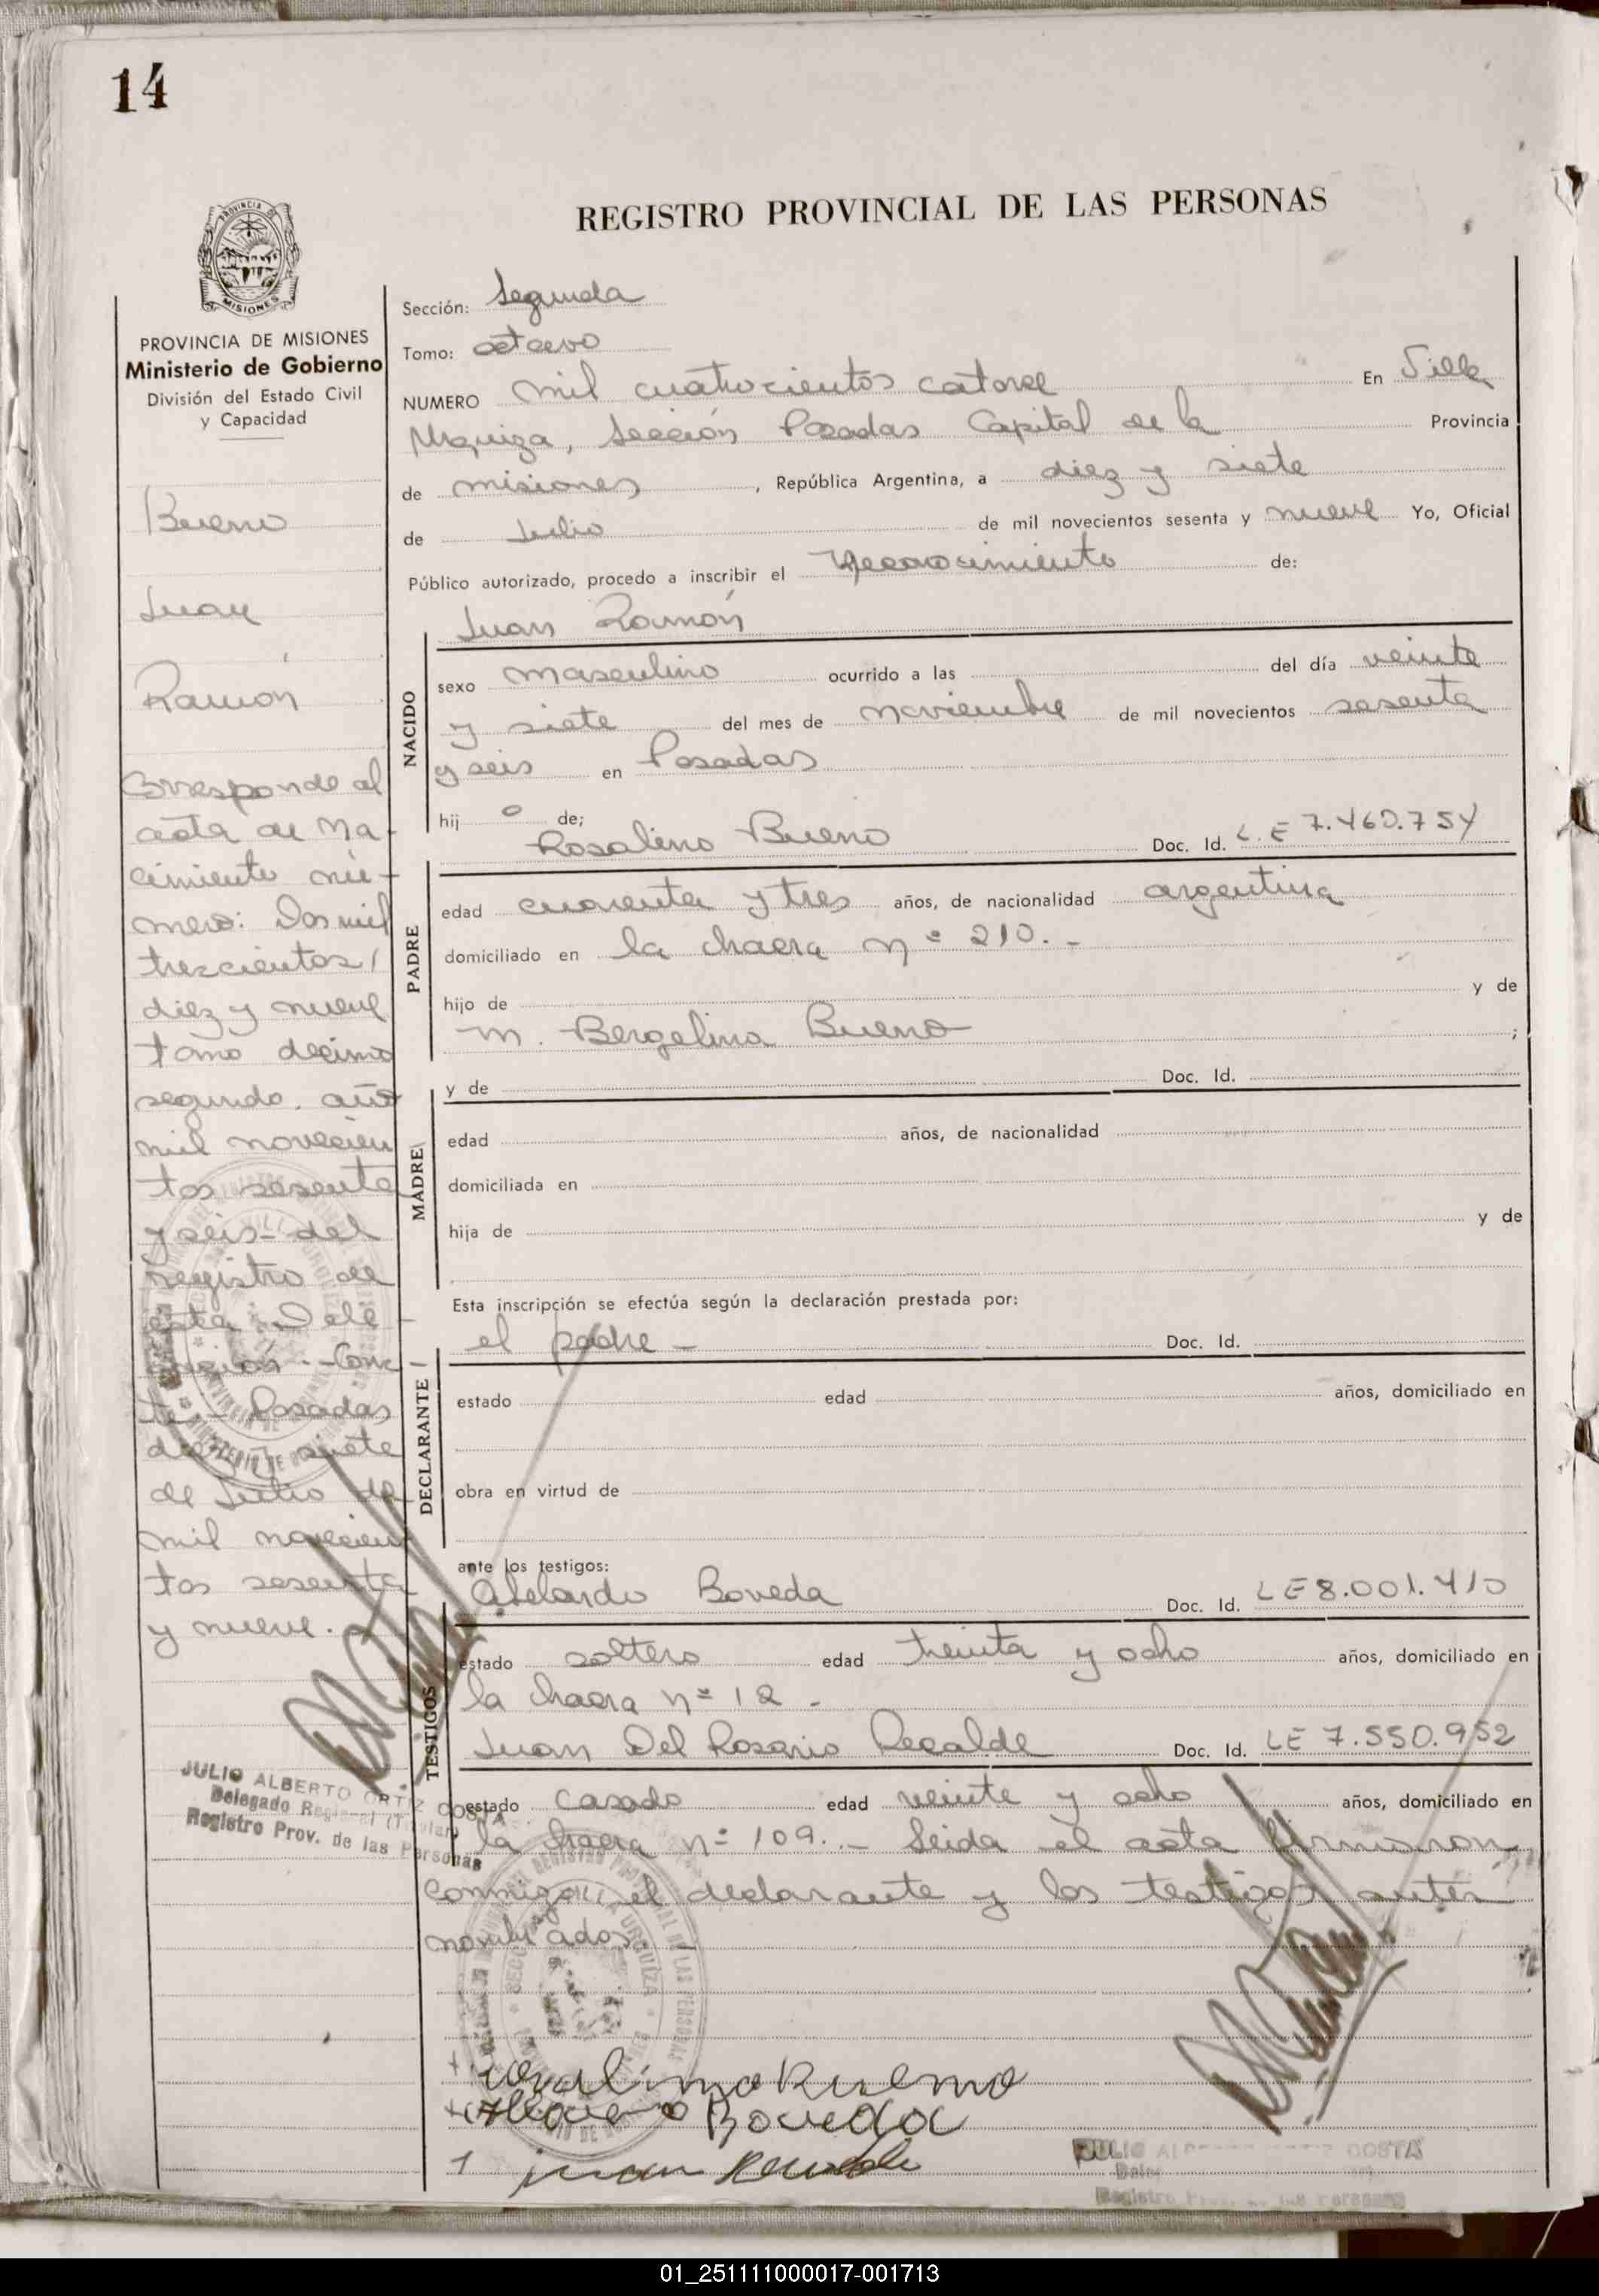 14
REGISTRO PROVINCIAL DE LAS PERSONAS
PROVINCIA DE
MISIONES
PROVINCIA DE MISIONES
Ministerio de Gobierno
División del Estado Civil
y Capacidad
Bueno
Juan
Ramón
Corresponde al
acta de Na-
cimiento nú-
mero: Dos mil
trescientos/
diez y nueve
tomo decimo
segundo. año
mil novecien
tos sesenta
y seis- del
registro de
esta Dele-
Conc-
te - Posadas
diez y siete
de Julio de
mil novecien
tos sesenta
y nueve.-
JULIO ALBERTO ORTIZ COSTA
Delegado Regional (Titular)
Registro Prov. de las Personas
Sección: Segunda
Tomo: octavo
NUMERO mil cuatrocientos catorce En Villa
Urquiza, Sección Posadas Capital de la Provincia
de misiones, República Argentina, a diez y siete
de Julio de mil novecientos sesenta y nueve Yo, Oficial
Público autorizado, procedo a inscribir el reconocimiento de:
Juan Ramón
NACIDO
sexo masculino ocurrido a las del día veinte
y siete del mes de noviembre de mil novecientos sesenta
y seis en Posadas
hij o de;
Rosalino Bueno Doc. Id. L.E 7.460.754
PADRE
edad cuarenta y tres años, de nacionalidad argentina
domiciliado en la chacra nº 210.-
hijo de y de
m. Bergelina Bueno ;
y de Doc. Id.
MADRE
edad años, de nacionalidad
domiciliada en
hija de y de
Esta inscripción se efectúa según la declaración prestada por:
el padre - Doc. Id.
DECLARANTE
estado edad años, domiciliado en
obra en virtud de
ante los testigos:
Abelardo Boveda Doc. Id. LE 8.001.410
TESTIGOS
estado soltero edad treinta y ocho años, domiciliado en
la chacra nº 12 -
Juan Del Rosario Recalde Doc. Id. LE 7.550.952
estado casado edad veinte y ocho años, domiciliado en
la chacra nº 109.- Leida el acta firmaron
conmigo el declarante y los testigos antes
nombrados.-
Boveda
juan
JULIO COSTA
01_251111000017-001713